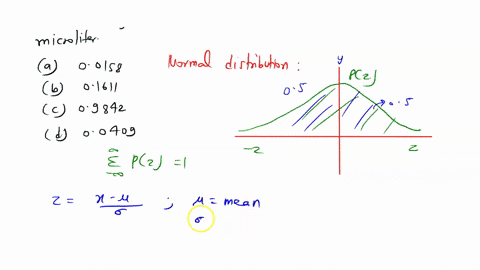 microliter.
(a) 0.0158
(b) 0.1611
(c) 0.9842
(d) 0.0409
Normal distribution :
y
P(z)
0.5
0.5
-z
z
∞
Σ P(z) = 1
-∞
z = x - μ / σ ; μ = mean
σ